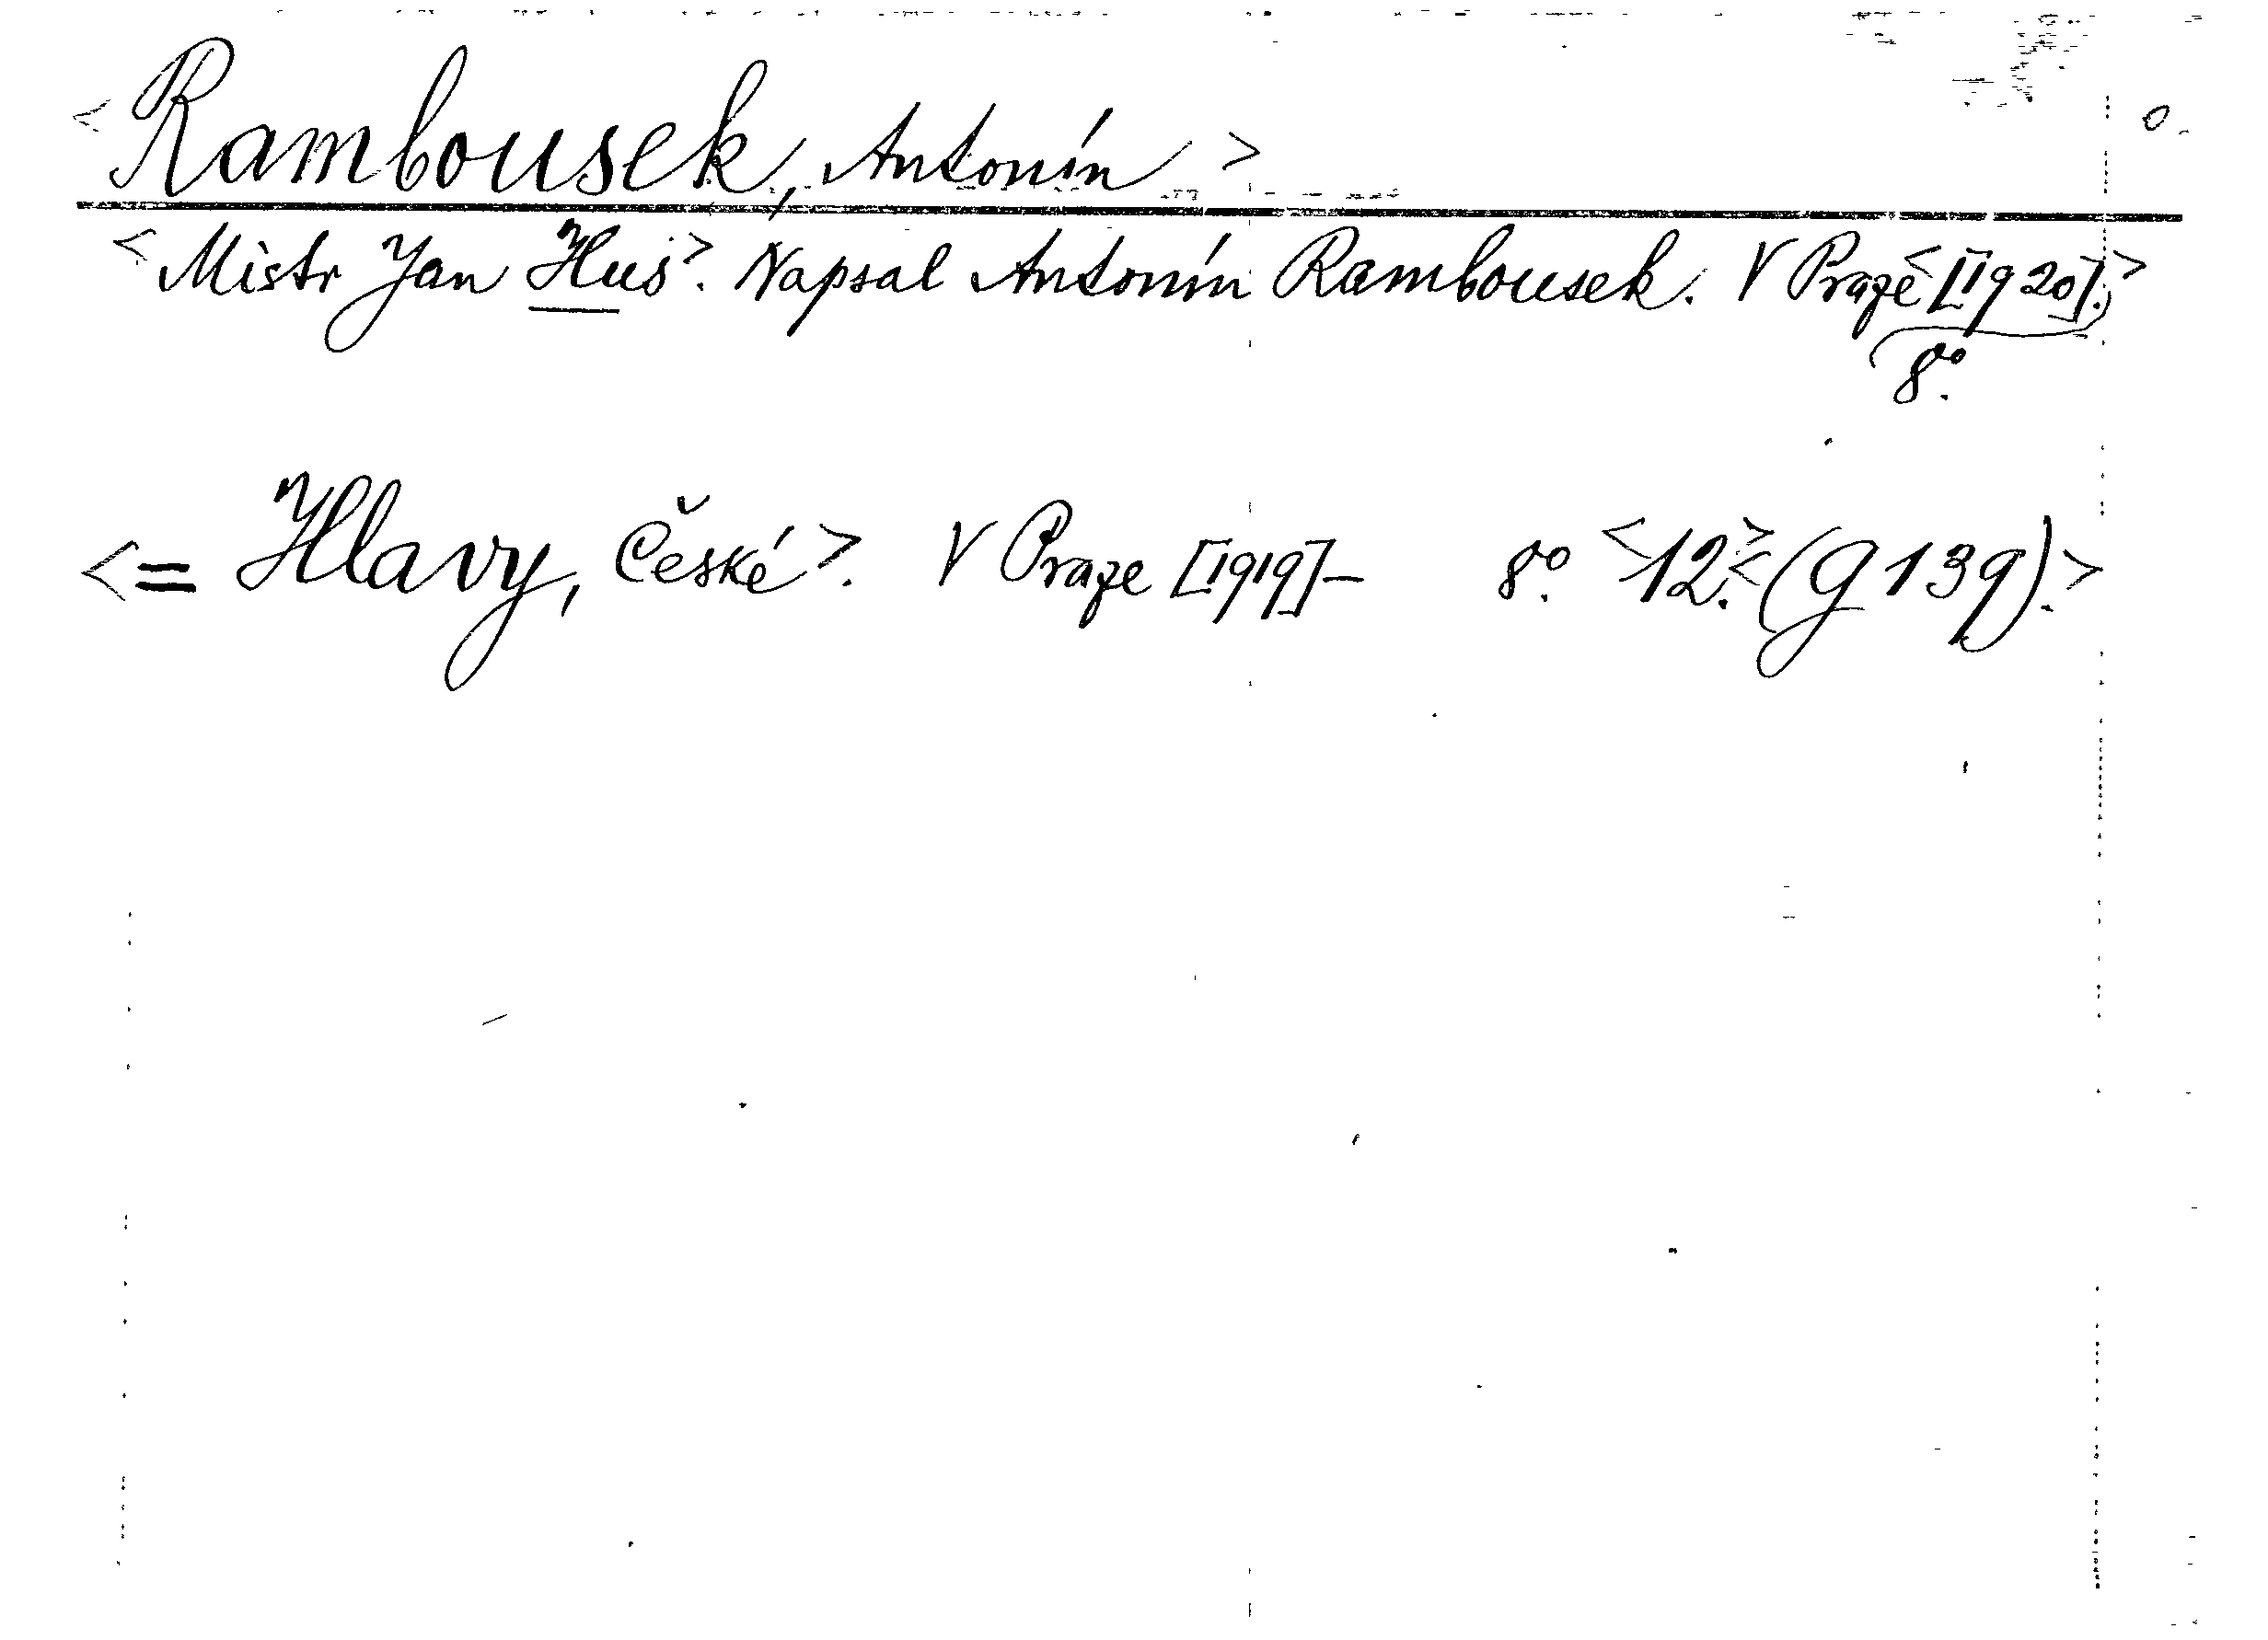 <Rambousek, Antonín> o.
<Mistr Jan Hus>. Napsal Antonín Rambousek. V Praze <[1920].>
8°.
<= Hlavy, České>. V Praze [1919]– 8°. <12.> <(g 139).>